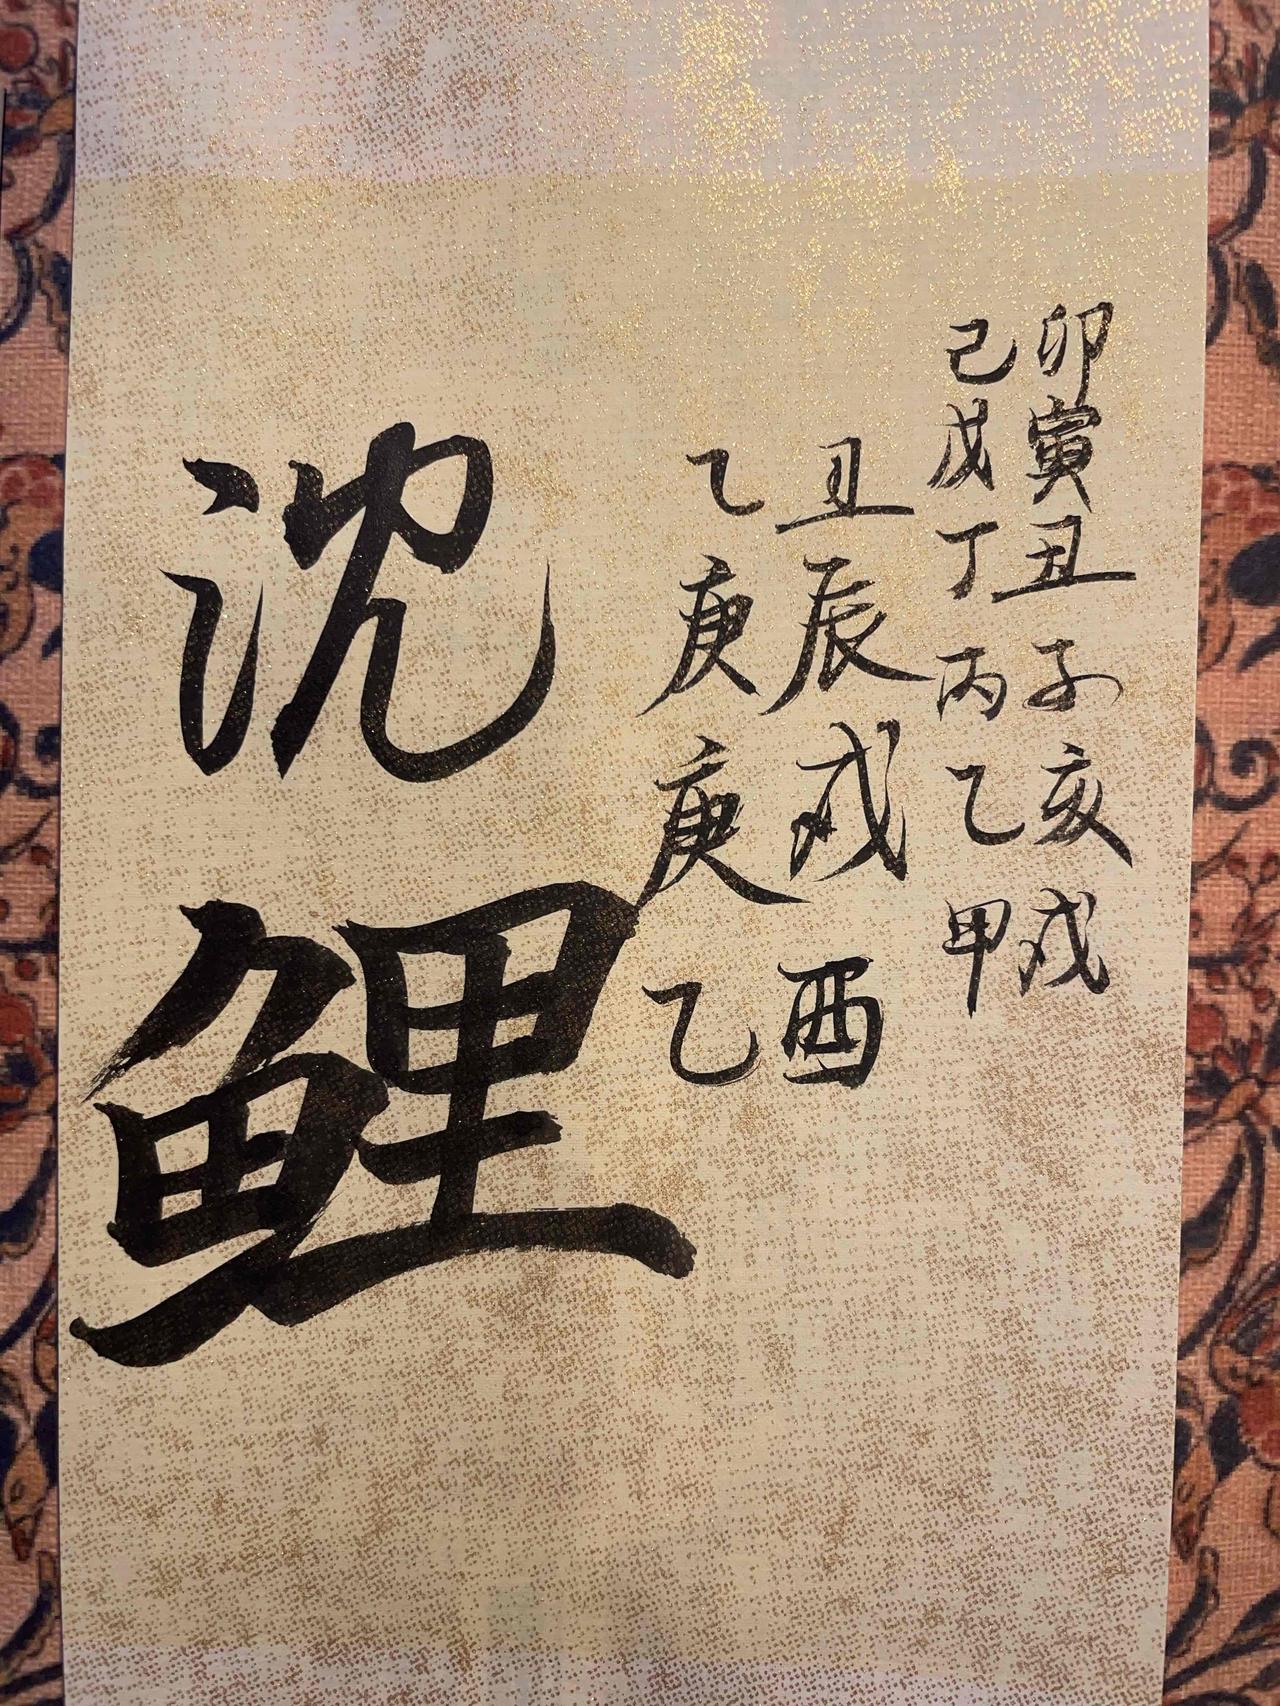 卯寅丑子亥戌
己戊丁丙乙甲
丑辰戌酉
乙庚庚乙
沈鲤